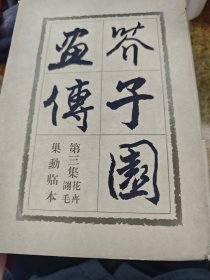 芥子園
畫傳
第三集 花卉翎毛
巢勳临本